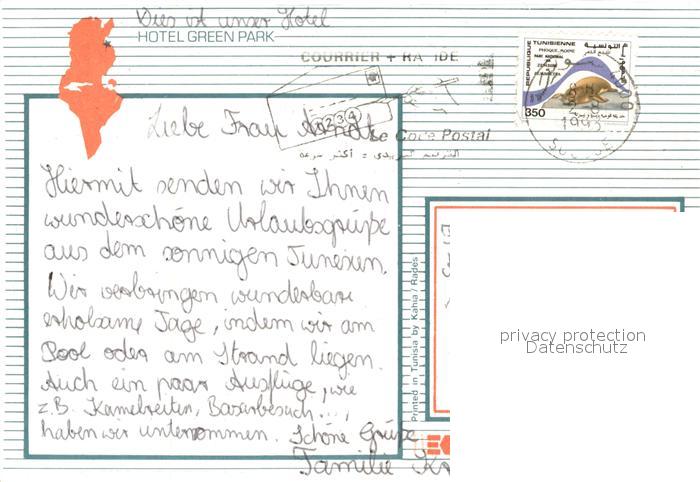 Dies ist unser Hotel
HOTEL GREEN PARK
COURRIER + RA IDE
1234
Le Code Postal
الترقيم البريدي = أكثر سرعة
REPUBLIQUE TUNISIENNE
PHOQUE MOINE
350
1993
SOUSSE
Liebe Frau
Hiermit senden wir Ihnen
wunderschöne Urlaubsgrüße
aus dem sonnigen Tunesien.
Wir verbringen wunderbare
erholsame Tage, indem wir am
Pool oder am Strand liegen.
Auch ein paar Ausflüge, wie
z.B. Kamelreiten, Basarbesuch...,
haben wir unternommen. Schöne Grüße
Familie
Printed in Tunisia by Kahia / Rades
privacy protection
Datenschutz